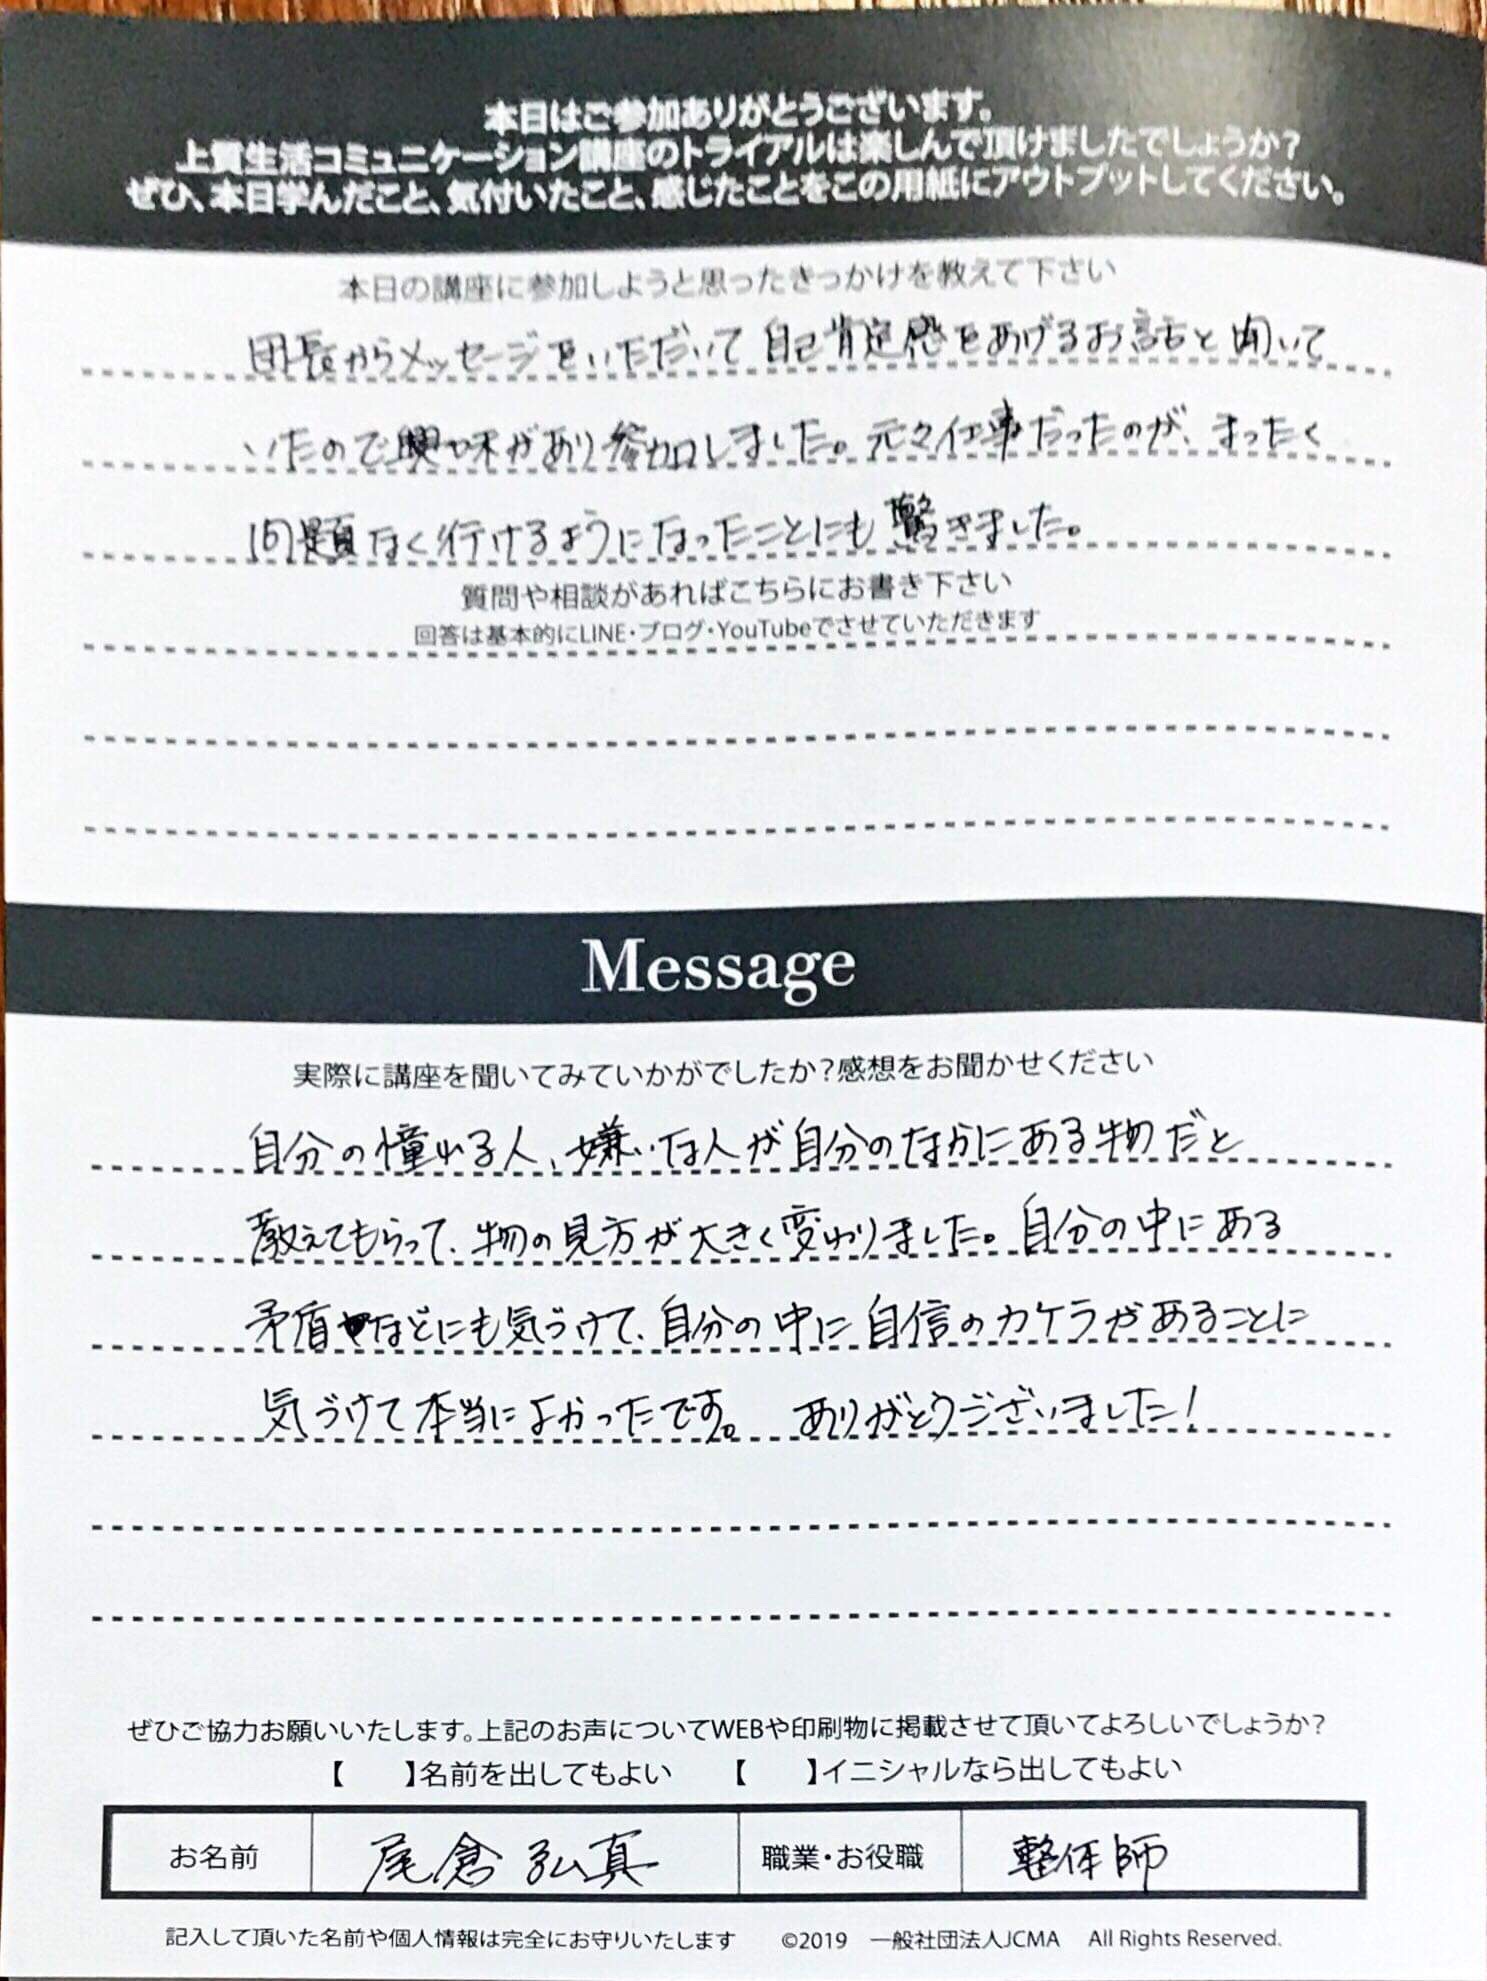 本日はご参加ありがとうございます。
上質生活コミュニケーション講座のトライアルは楽しんで頂けましたでしょうか？
ぜひ、本日学んだこと、気付いたこと、感じたことをこの用紙にアウトプットしてください。
本日の講座に参加しようと思ったきっかけを教えて下さい
団長からメッセージをいただいて自己肯定感をあげるお話と聞いて
いたので興味があり参加しました。元々仕事だったのが、まったく
問題なく行けるようになったことにも驚きました。
質問や相談があればこちらにお書き下さい
回答は基本的にLINE・ブログ・YouTubeでさせていただきます
Message
実際に講座を聞いてみていかがでしたか？感想をお聞かせください
自分の憧れる人、嫌いな人が自分のなかにある物だと
教えてもらって、物の見方が大きく変わりました。自分の中にある
矛盾などにも気づけて、自分の中に自信のカケラがあることに
気づけて本当によかったです。 ありがとうございました！
ぜひご協力お願いいたします。上記のお声についてWEBや印刷物に掲載させて頂いてよろしいでしょうか？
【　　】名前を出してもよい　【　　】イニシャルなら出してもよい
お名前 尾倉 弘真 職業・お役職 整体師
記入して頂いた名前や個人情報は完全にお守りいたします ©2019 一般社団法人JCMA All Rights Reserved.